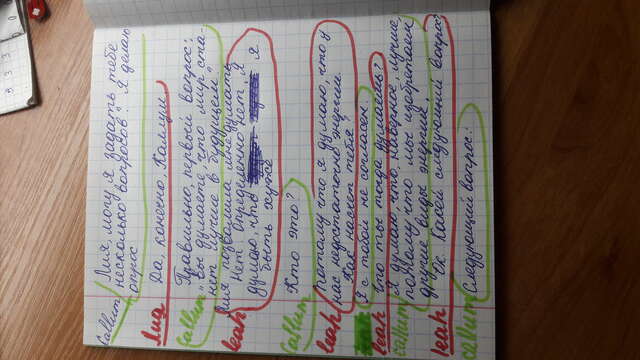 Callum Лия, могу я задать тебе
несколько вопросов? Я делаю
опрос
Лия Да, конечно, Каллум
Правильно, первый вопрос:
Callum „Вы думаете, что мир ста-
нет лучше в будущем."
Лия, позволила мне думать
leah Нет. Определенно нет. Я
думаю, что я
быть хуже
Callum Кто это?
Потому что я думаю, что у
leah нас недостаточно энергии.
Как насчет тебя?
Я с тобой не согласен.
leah Что ты тогда думаешь?
callum Я думаю, что, наверное, лучше,
потому что мы изобретаем
другие виды энергии.
leah Ок. Какой следующий вопрос?
callum Следующий вопрос:
333